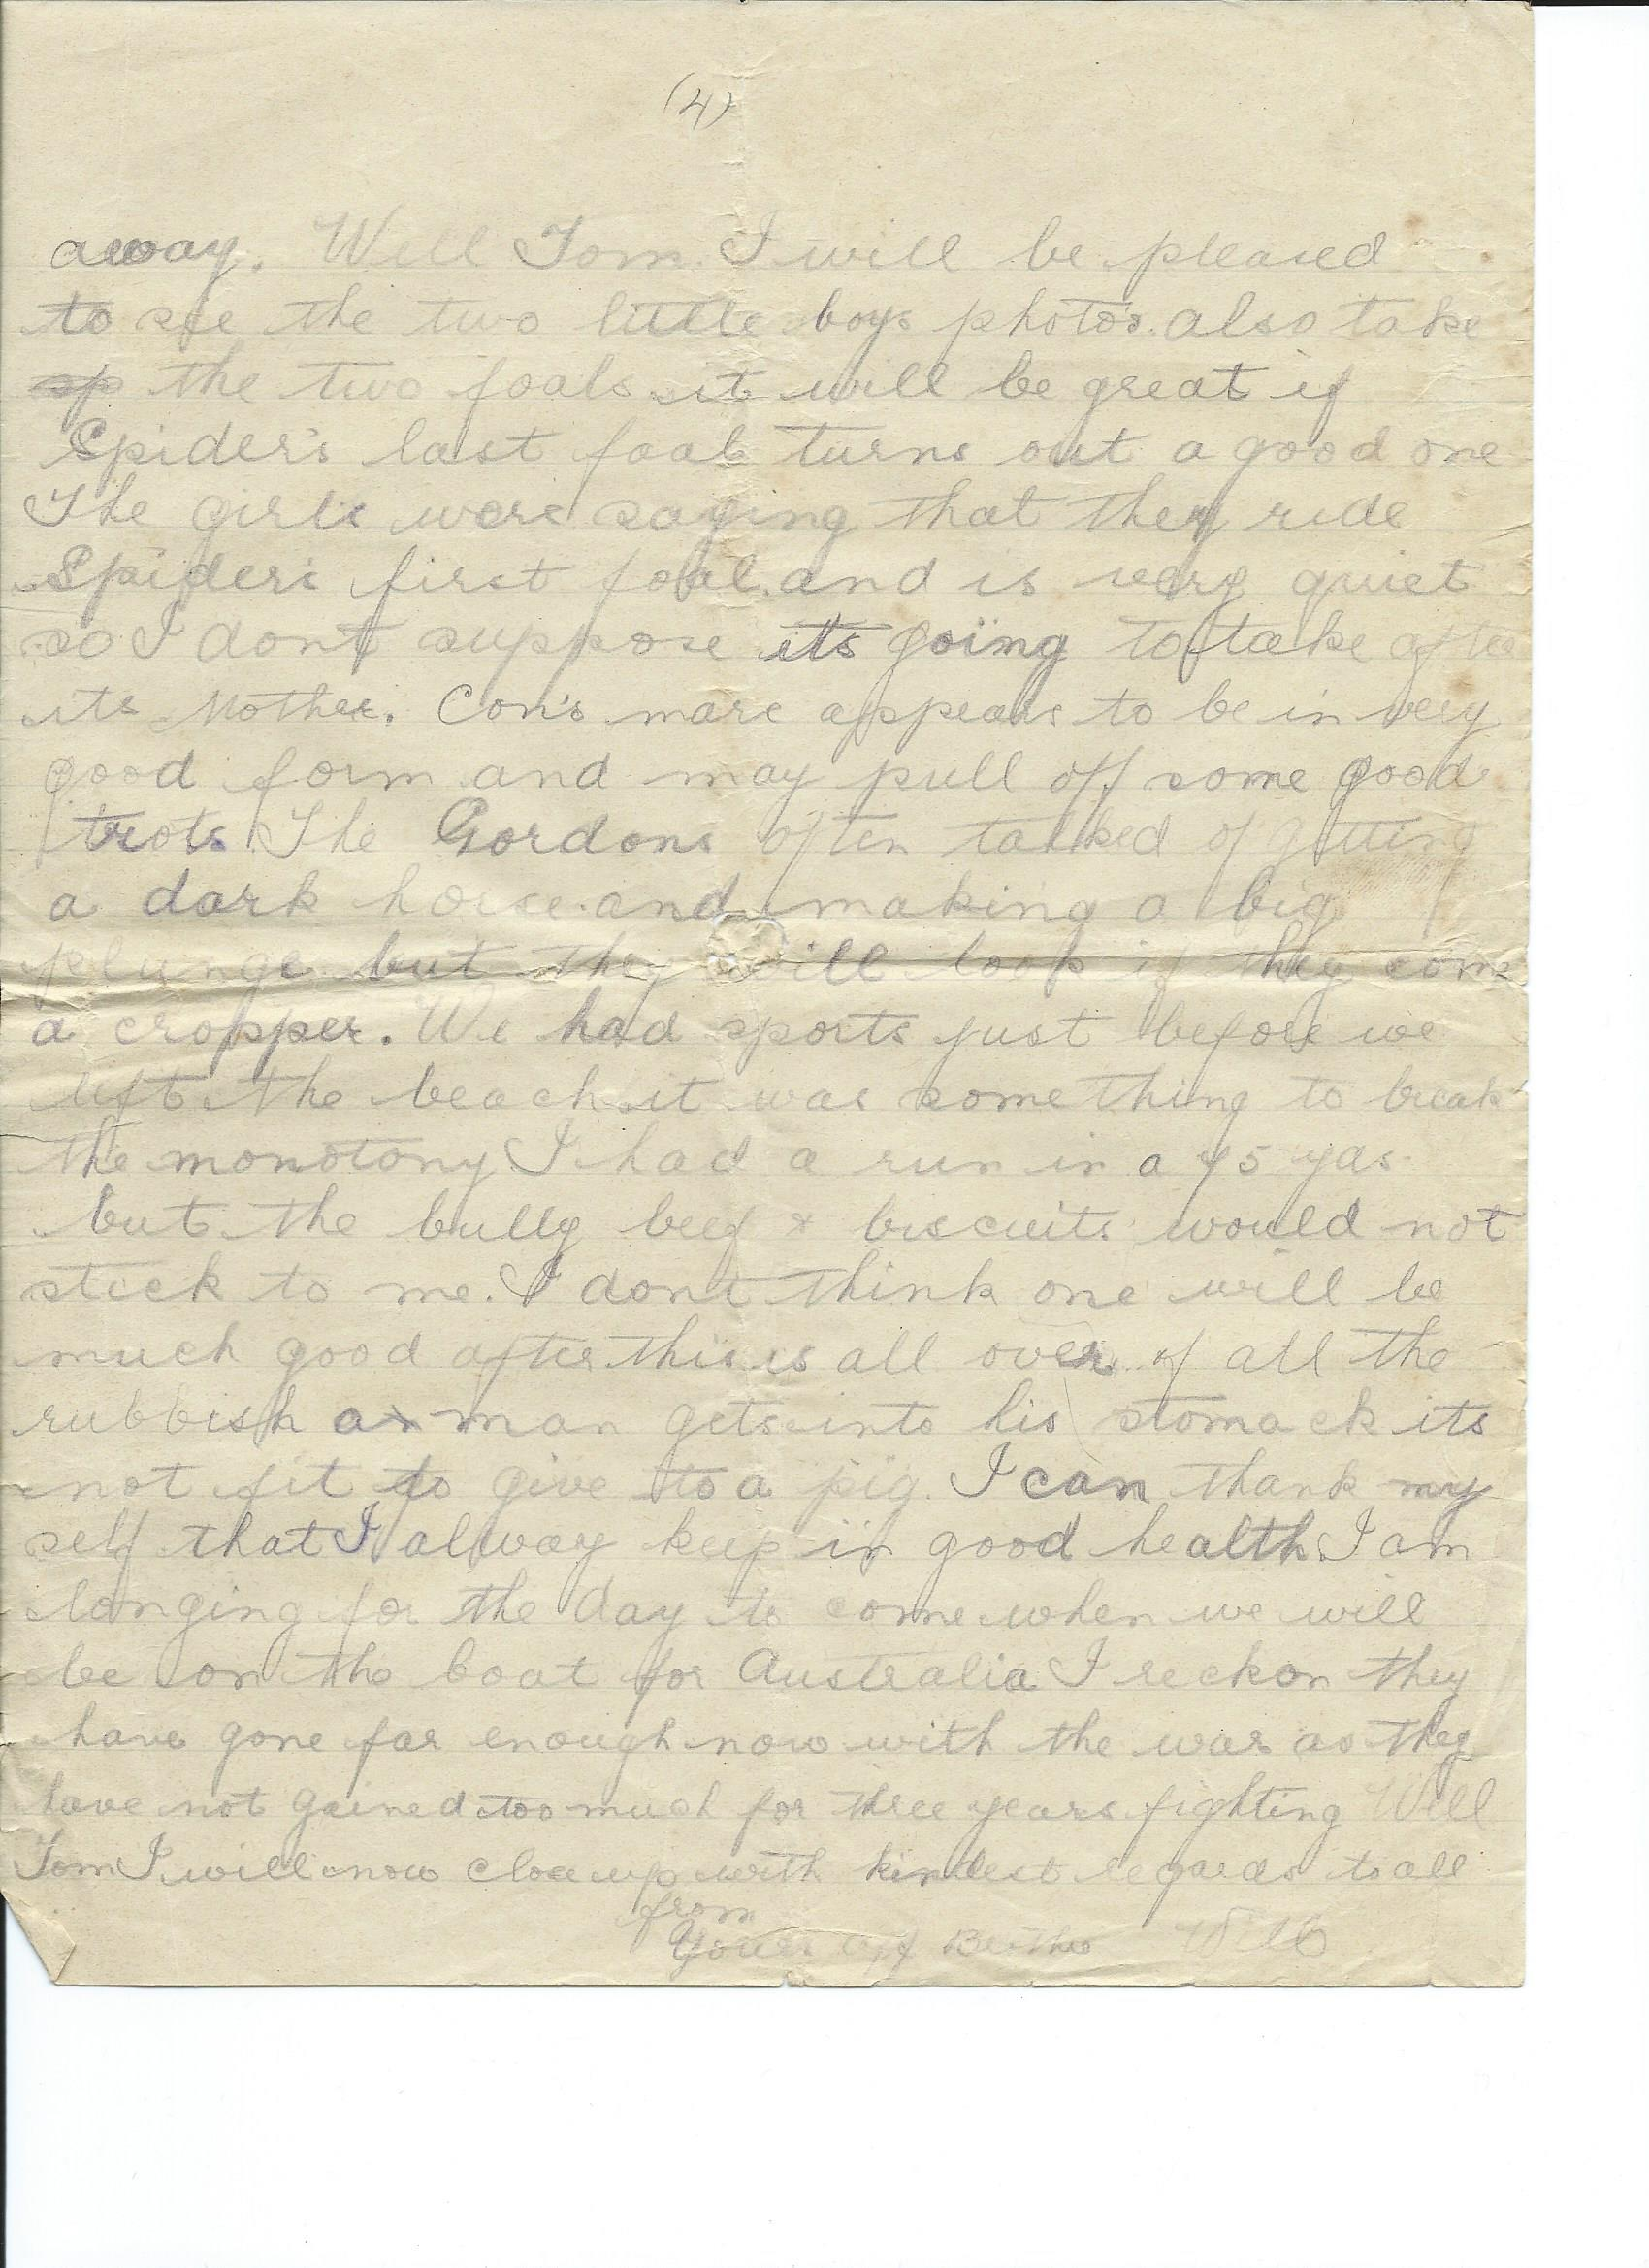 (4)
away. Well Tom I will be pleased
to see the two little boys photo's also take
the two foals it will be great if
Spider's last foal turns out a good one
The girls were saying that they ride
Spider's first foal and is very quiet
so I dont suppose its going to take after
its Mother. Con's mare appears to be in very
good form and may pull off some good
trots. The Gordons often talked of getting
a dark horse and making a big
plunge but they will look if they come
a cropper. We had sports just before we
left the beach it was something to break
the monotony I had a run in a 75 yds
but the bully beef & biscuits would not
stick to me. I dont think one will be
much good after this is all over of all the
rubbish a man gets into his stomack its
not fit to give to a pig. I can thank my
self that I alway keep in good health I am
longing for the day to come when we will
be on the boat for Australia I reckon they
have gone far enough now with the war as they
have not gained too much for three years fighting Well
Tom I will now close up with kindest regards to all
from
Your aff Brother Will